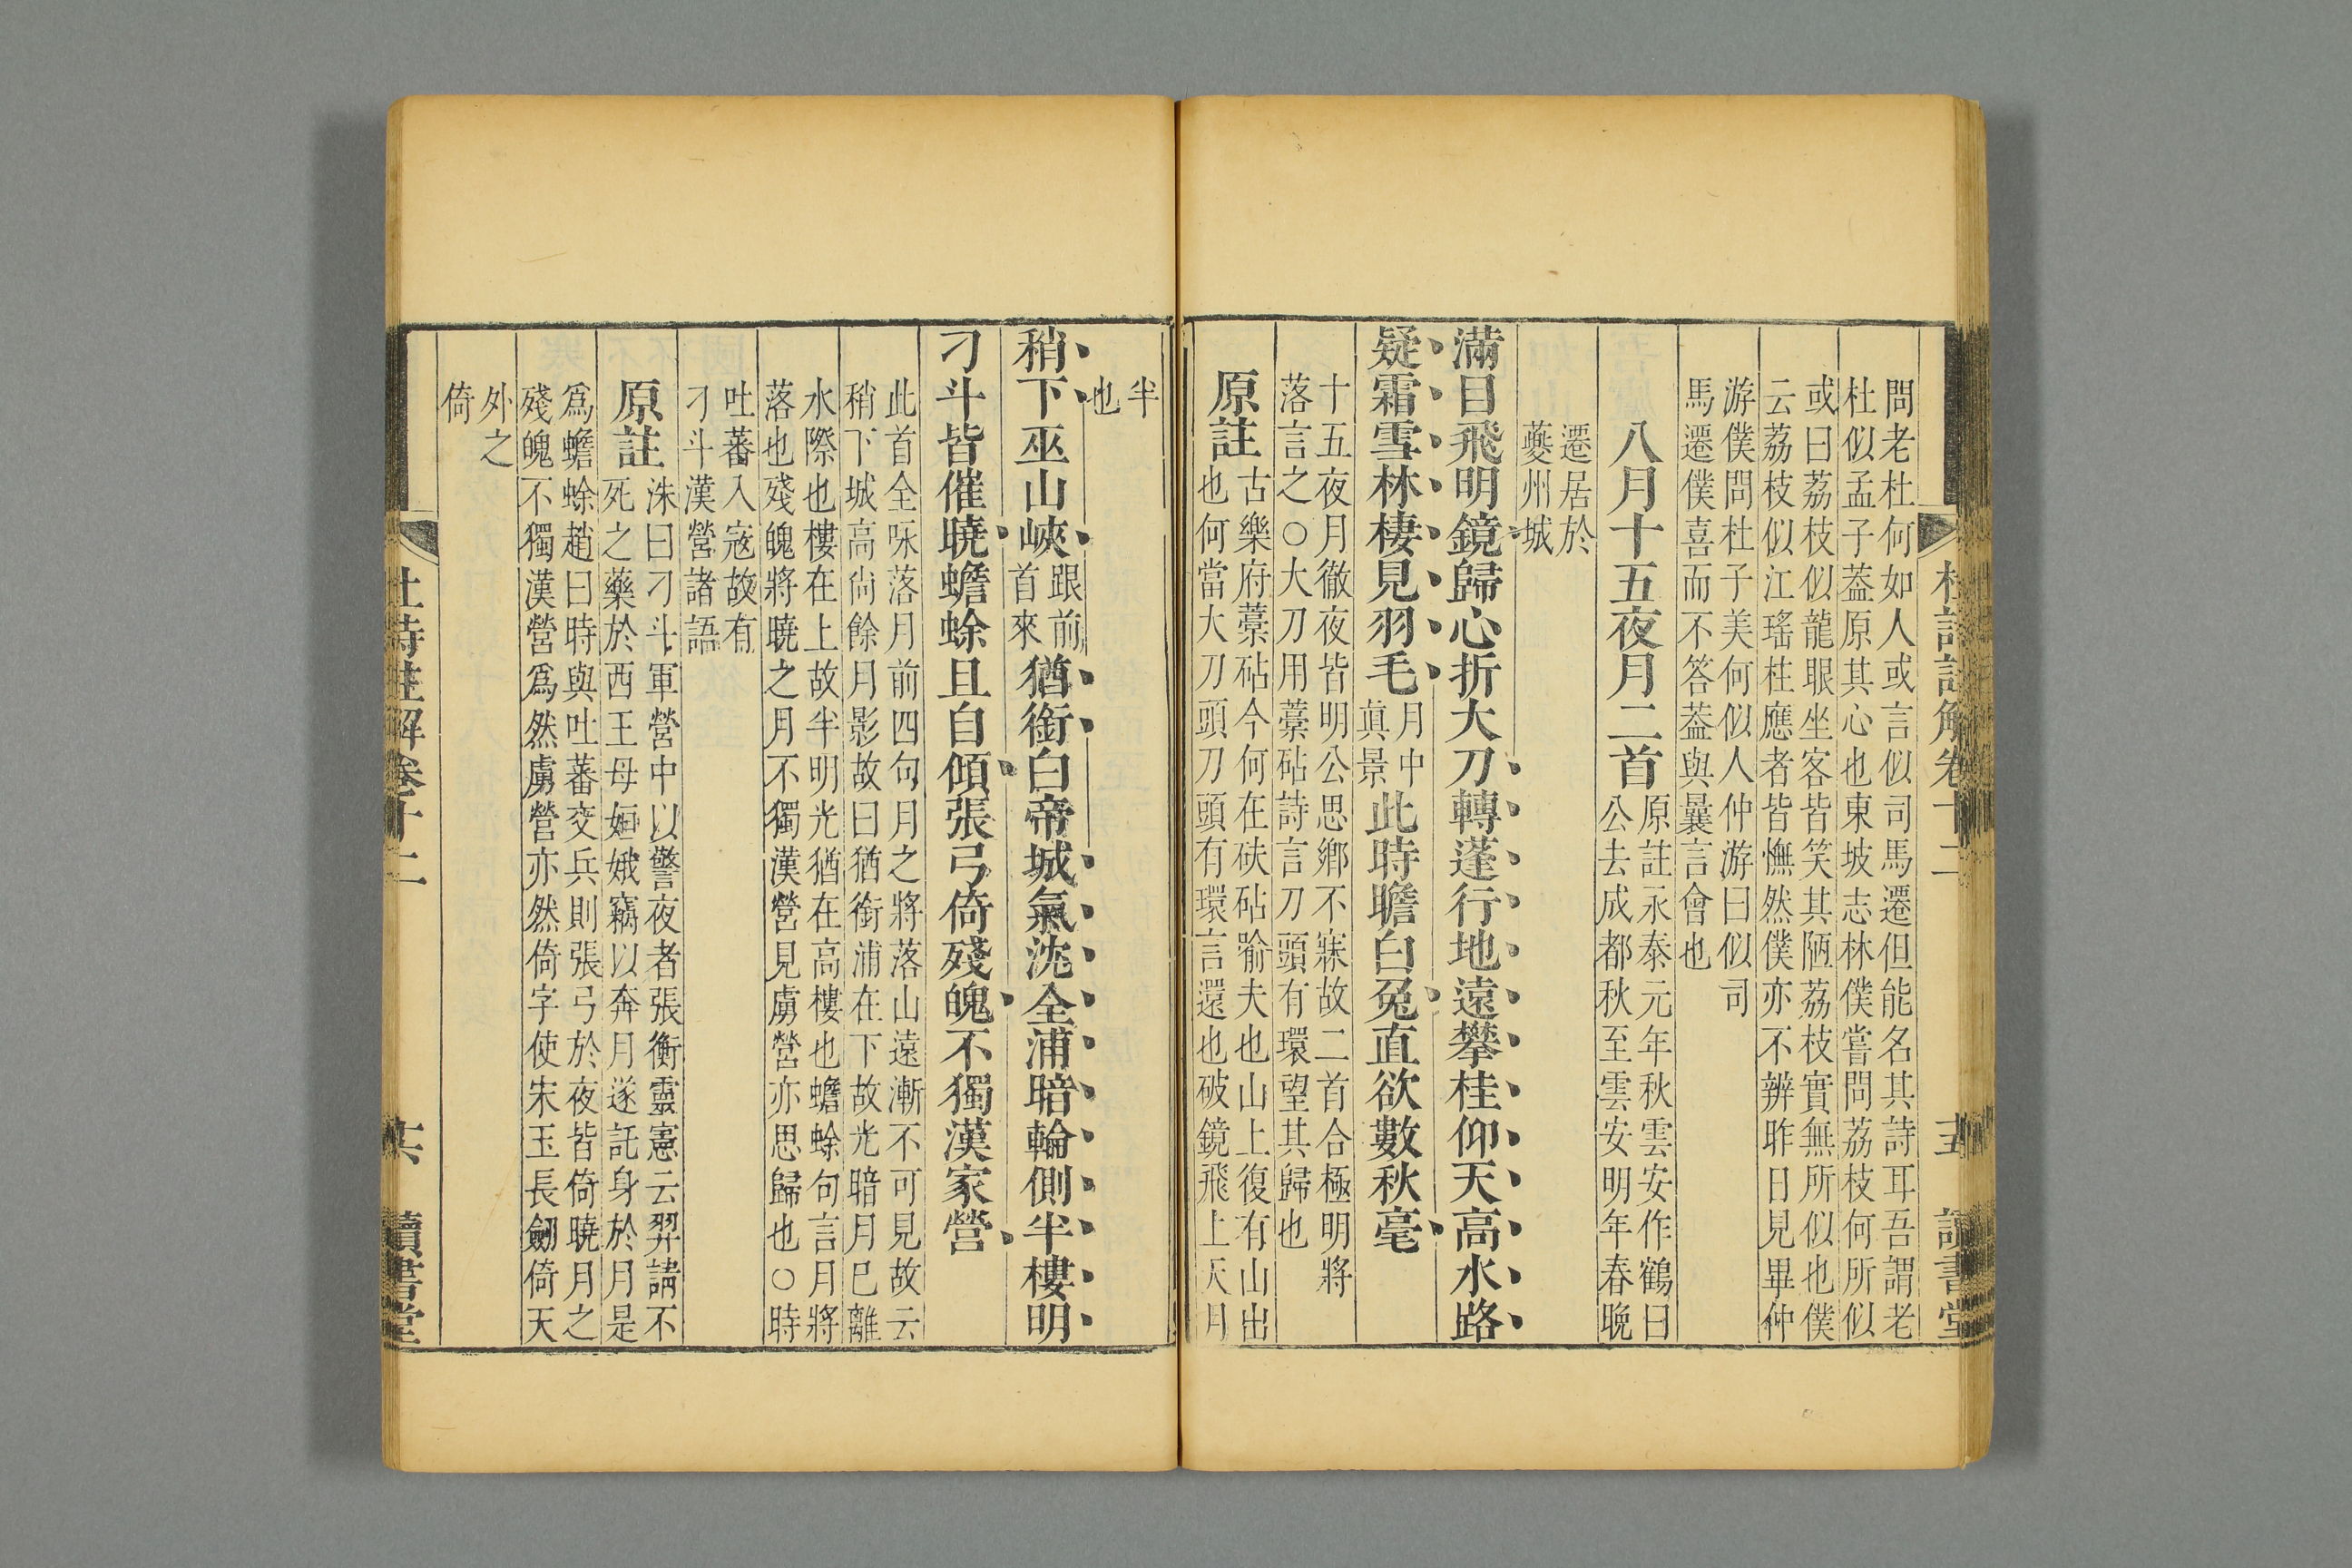 問老杜何如人或言似司馬遷但能名其詩耳吾謂老
杜似孟子葢原其心也東坡志林僕嘗問荔枝何所似
或曰荔枝似龍眼坐客皆笑其陋荔枝實無所似也僕
云荔枝似江瑤柱應者皆憮然僕亦不辨昨日見畢仲
游僕問杜子美何似人仲游曰似司
馬遷僕喜而不答葢與曩言會也
八月十五夜月二首
原註永泰元年秋雲安作鶴曰
公去成都秋至雲安明年春晚
遷居於
夔州城
滿目飛明鏡歸心折大刀轉蓬行地遠攀桂仰天高水路
疑霜雪林棲見羽毛
月中
眞景
此時瞻白兔直欲數秋毫
十五夜月徹夜皆明公思鄉不寐故二首合極明將
落言之○大刀用藁砧詩言刀頭有環望其歸也
原註
古樂府藁砧今何在砆砧踰夫也山上復有山出
也何當大刀頭刀頭有環言還也破鏡飛上天月
半
也
稍下巫山峽
跟前
首來
猶銜白帝城氣沈全浦暗輪側半樓明
刁斗皆催曉蟾蜍且自傾張弓倚殘魄不獨漢家營
此首全咏落月前四句月之將落山遠漸不可見故云
稍下城高尙餘月影故曰猶銜浦在下故光暗月已離
水際也樓在上故半明光猶在高樓也蟾蜍句言月將
落也殘魄將曉之月不獨漢營見虜營亦思歸也○時
吐蕃入寇故有
刁斗漢營諸語
原註
洙曰刁斗軍營中以警夜者張衡靈憲云羿請不
死之藥於西王母姮娥竊以奔月遂託身於月是
爲蟾蜍趙曰時與吐蕃交兵則張弓於夜皆倚曉月之
殘魄不獨漢營爲然虜營亦然倚字使宋玉長劒倚天
外之
倚
杜詩註解卷十二
十六
讀書堂